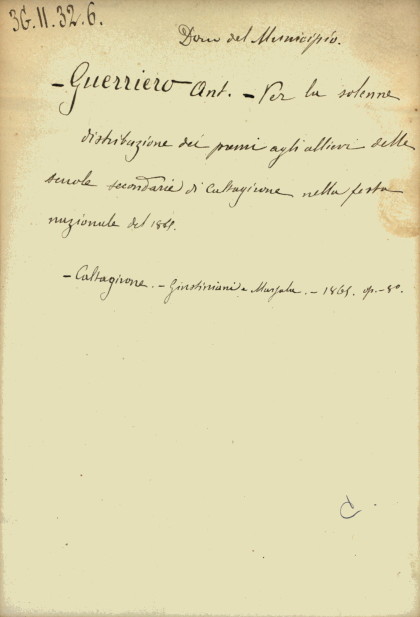 3G.11.32.6.
Dono del Municipio.
- Guerriero Ant. - Per la solenne
distribuzione dei premi agli allievi delle
scuole secondarie di Caltagirone nella festa
nazionale del 1865.
- Caltagirone. - Giustiniani e - 1865. op. - 8º.
C